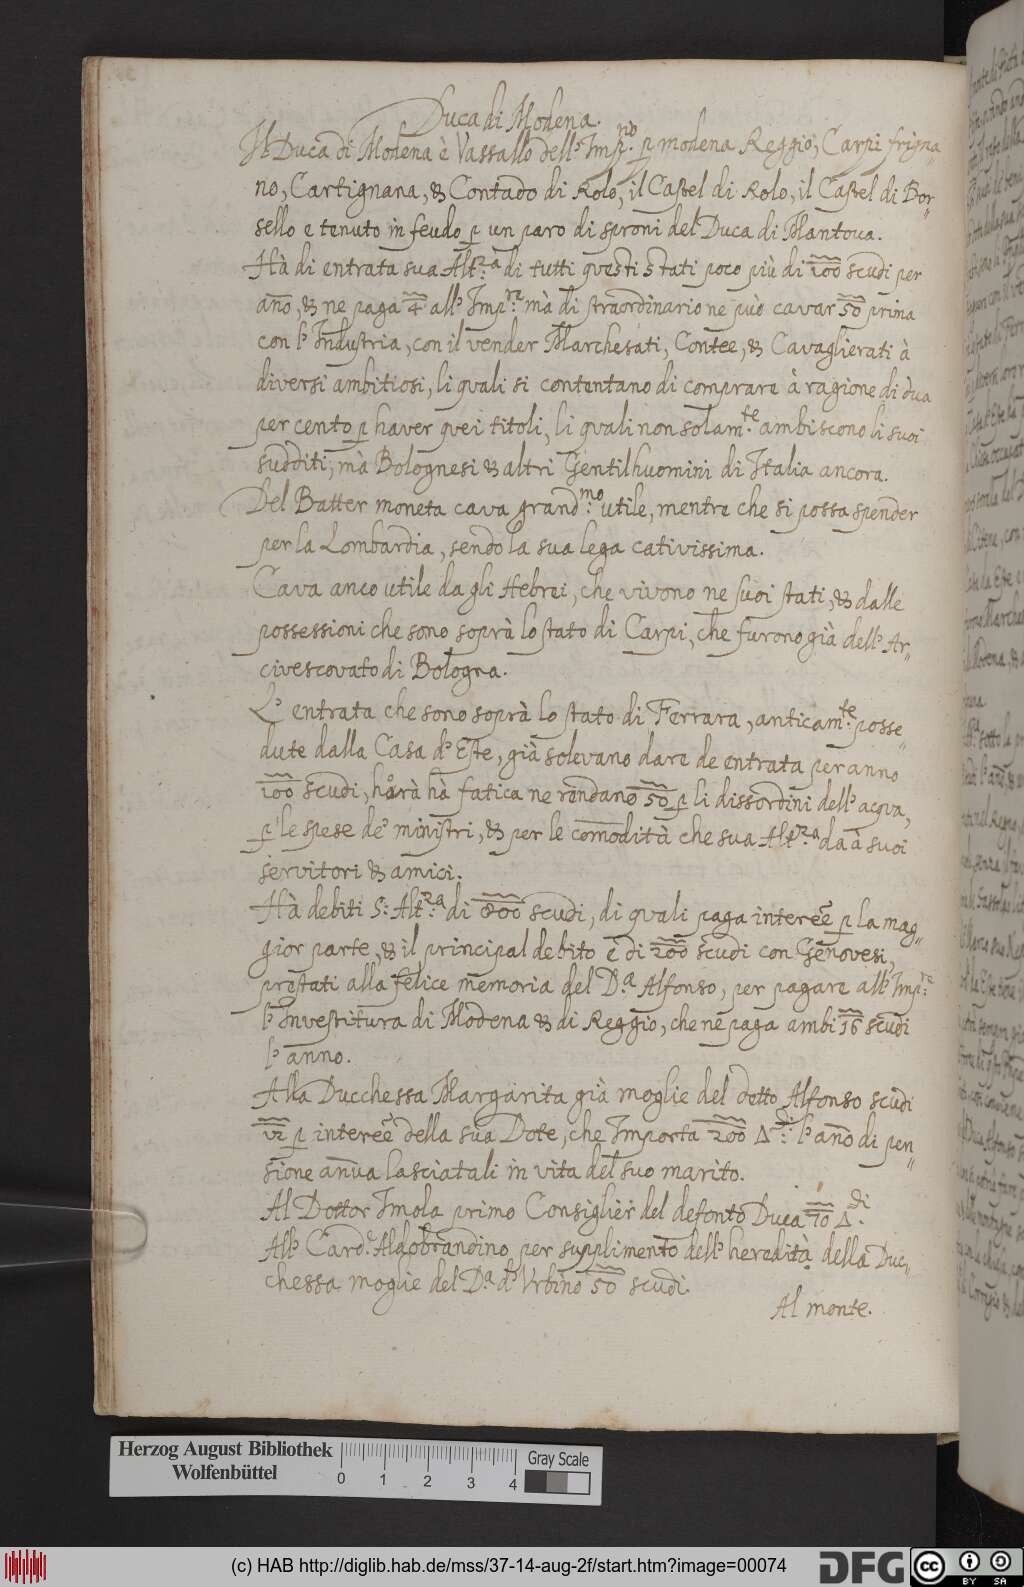 Duca di Modena.
Il Duca di Modena è Vassallo dell' Imp.rio p modena Reggio, Carpi frigna
no, Cartignana, & Contado di Rolo, il Castel di Rolo, il Castel di Bor-
sello e tenuto in feudo p un paro di sproni del Duca di Mantoua.
Hà di entrata sua Alt.za di tutti questi stati poco più di 100 scudi per
año, & ne paga 4 all' Imp.re mà di straordinario ne può cavar 50 prima
con l' Industria, con il vender Marchesati, Contee, & Cavaglierati à
diversi ambitiosi, li quali si contentano di comprare à ragione di dua
per cento p haver quei titoli, li quali non solam.te ambiscono li suoi
sudditi, mà Bolognesi & altri Gentilhuomini di Italia ancora.
Del Batter moneta cava grand.mo utile, mentre che si possa spender
per la Lombardia, sendo la sua lega cativissima.
Cava anco utile da gli Hebrei, che vivono ne suoi stati, & dalle
possessioni che sono soprà lo stato di Carpi, che furono già dell' Ar-
civescovato di Bologna.
L' entrata che sono soprà lo stato di Ferrara, anticam.te posse-
dute dalla Casa d' Este, già solevano dare de entrata per anno
100 scudi, horà hà fatica ne rendano 50 p li dissordini dell' acqua,
p le spese de' ministri, & per le comodità che sua Alt.za da à suoi
servitori & amici.
Hà debiti S: Alt.za di 800 scudi, di quali paga intereẽ p la mag-
gior parte, & il principal debito è di 200 scudi con Genovesi,
prestati alla felice memoria del D.a Alfonso, per pagare all' Imp.re
l' Investitura di Modena & di Reggio, che ne paga ambi 16 scudi
l' anno.
Alla Ducchessa Margarita già moglie del detto Alfonso scudi
12 p intereẽ della sua Dote, che Importa 200 Δ.di l' año di pen-
sione anũa lasciatali in vita del suo marito.
Al Dottor Imola primo Consiglier del defonto Duca 10 Δ.di
All' Card.e Aldobrandino per supplimento dell' heredità della Duc-
chessa moglie del D.a d' Urbino 50 scudi.
Al monte.
Herzog August Bibliothek
Wolfenbüttel
0 1 2 3 4
Gray Scale
(c) HAB http://diglib.hab.de/mss/37-14-aug-2f/start.htm?image=00074
DFG
cc
BY SA